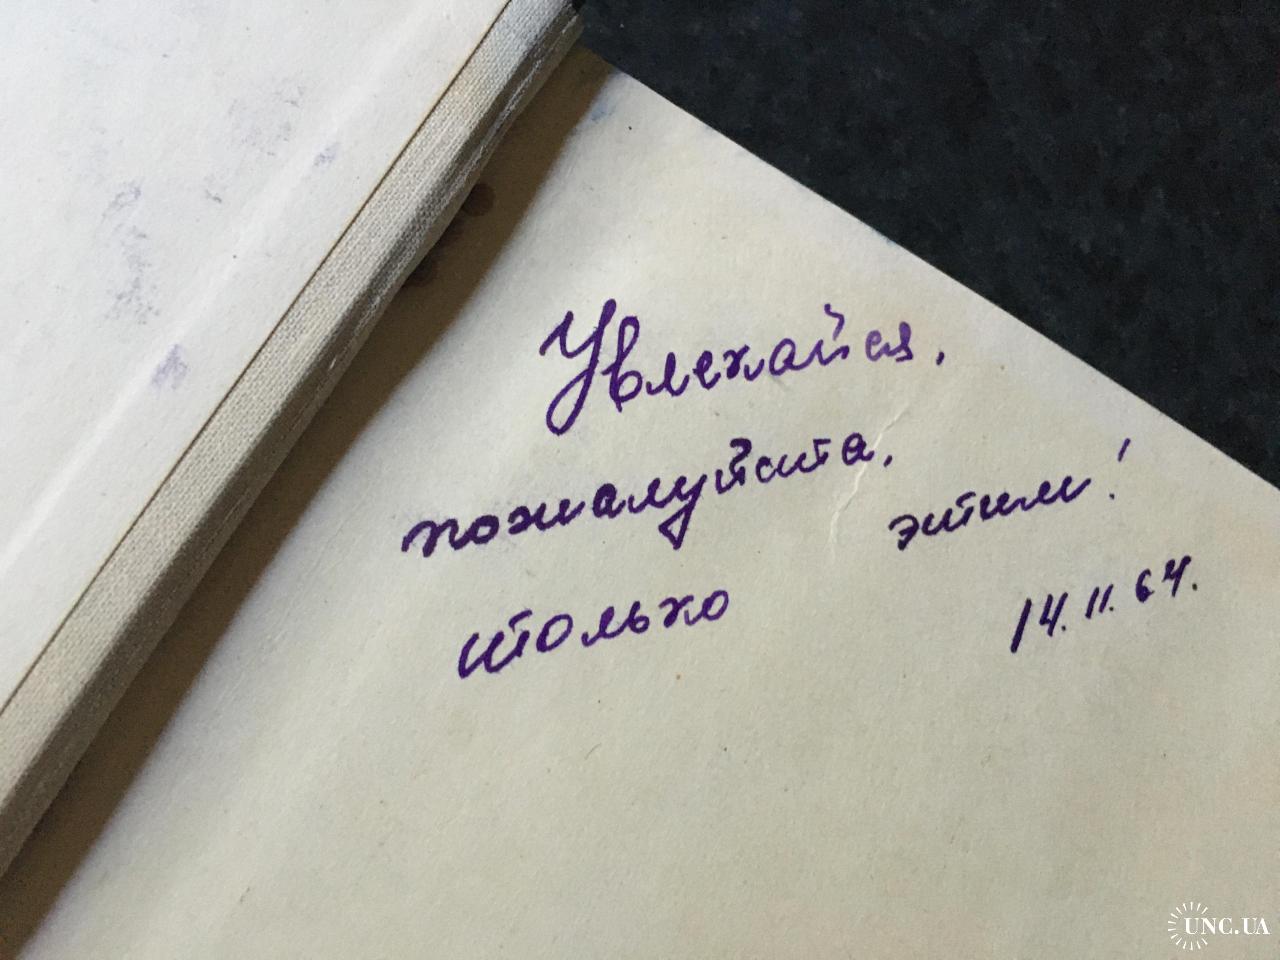 Увлекайся,
пожалуйста,
только этим!
14.11.64.
UNC.UA